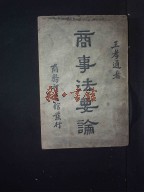 王孝通著
商事法要論
商務印書館發行